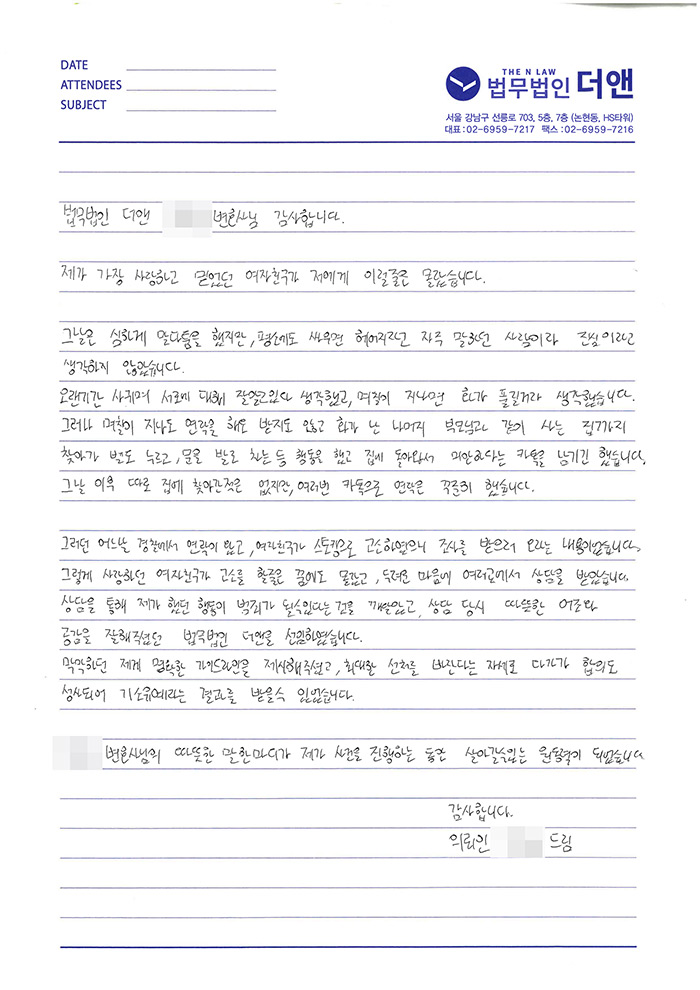 DATE
ATTENDEES
SUBJECT
THE N LAW
법무법인 더앤
서울 강남구 선릉로 703, 5층, 7층 (논현동, HS타워)
대표:02-6959-7217 팩스:02-6959-7216
법무법인 더앤 변호사님 감사합니다.
제가 가장 사랑하고 믿었던 여자친구가 저에게 이럴줄은 몰랐습니다.
그날은 심하게 말다툼을 했지만, 평소에도 싸우면 헤어지자고 자주 말하던 사람이라 진심이라고
생각하지 않았습니다.
오랜기간 사귀며 서로에 대해 잘알고있다 생각했고, 며칠이 지나면 화가 풀릴거라 생각했습니다.
그러나 며칠이 지나도 연락을 해도 받지도 않고 화가 난 나머지 부모님과 같이 사는 집까지
찾아가 벨도 누르고, 문을 발로 차는 등 행동을 했고 집에 돌아와서 미안하다는 카톡을 남기긴 했습니다.
그날 이후 따로 집에 찾아간적은 없지만, 여러번 카톡으로 연락은 꾸준히 했습니다.
그러던 어느날 경찰에서 연락이 왔고, 여자친구가 스토킹으로 고소하였으니 조사를 받으러 오라는 내용이었습니다.
그렇게 사랑하던 여자친구가 고소를 할줄은 꿈에도 몰랐고, 두려운 마음에 여러곳에서 상담을 받았습니다.
상담을 통해 제가 했던 행동이 범죄가 될수있다는 것을 깨달았고, 상담 당시 따뜻한 어조와
공감을 잘해주셨던 법무법인 더앤을 선임하였습니다.
막막하던 제게 명확한 가이드라인을 제시해주셨고, 최대한 선처를 바란다는 자세로 다가가 합의도
성사되어 기소유예라는 결과를 받을수 있었습니다.
변호사님의 따뜻한 말한마디가 제가 사건을 진행하는 동안 살아갈수있는 원동력이 되었습니다
감사합니다.
의뢰인 드림